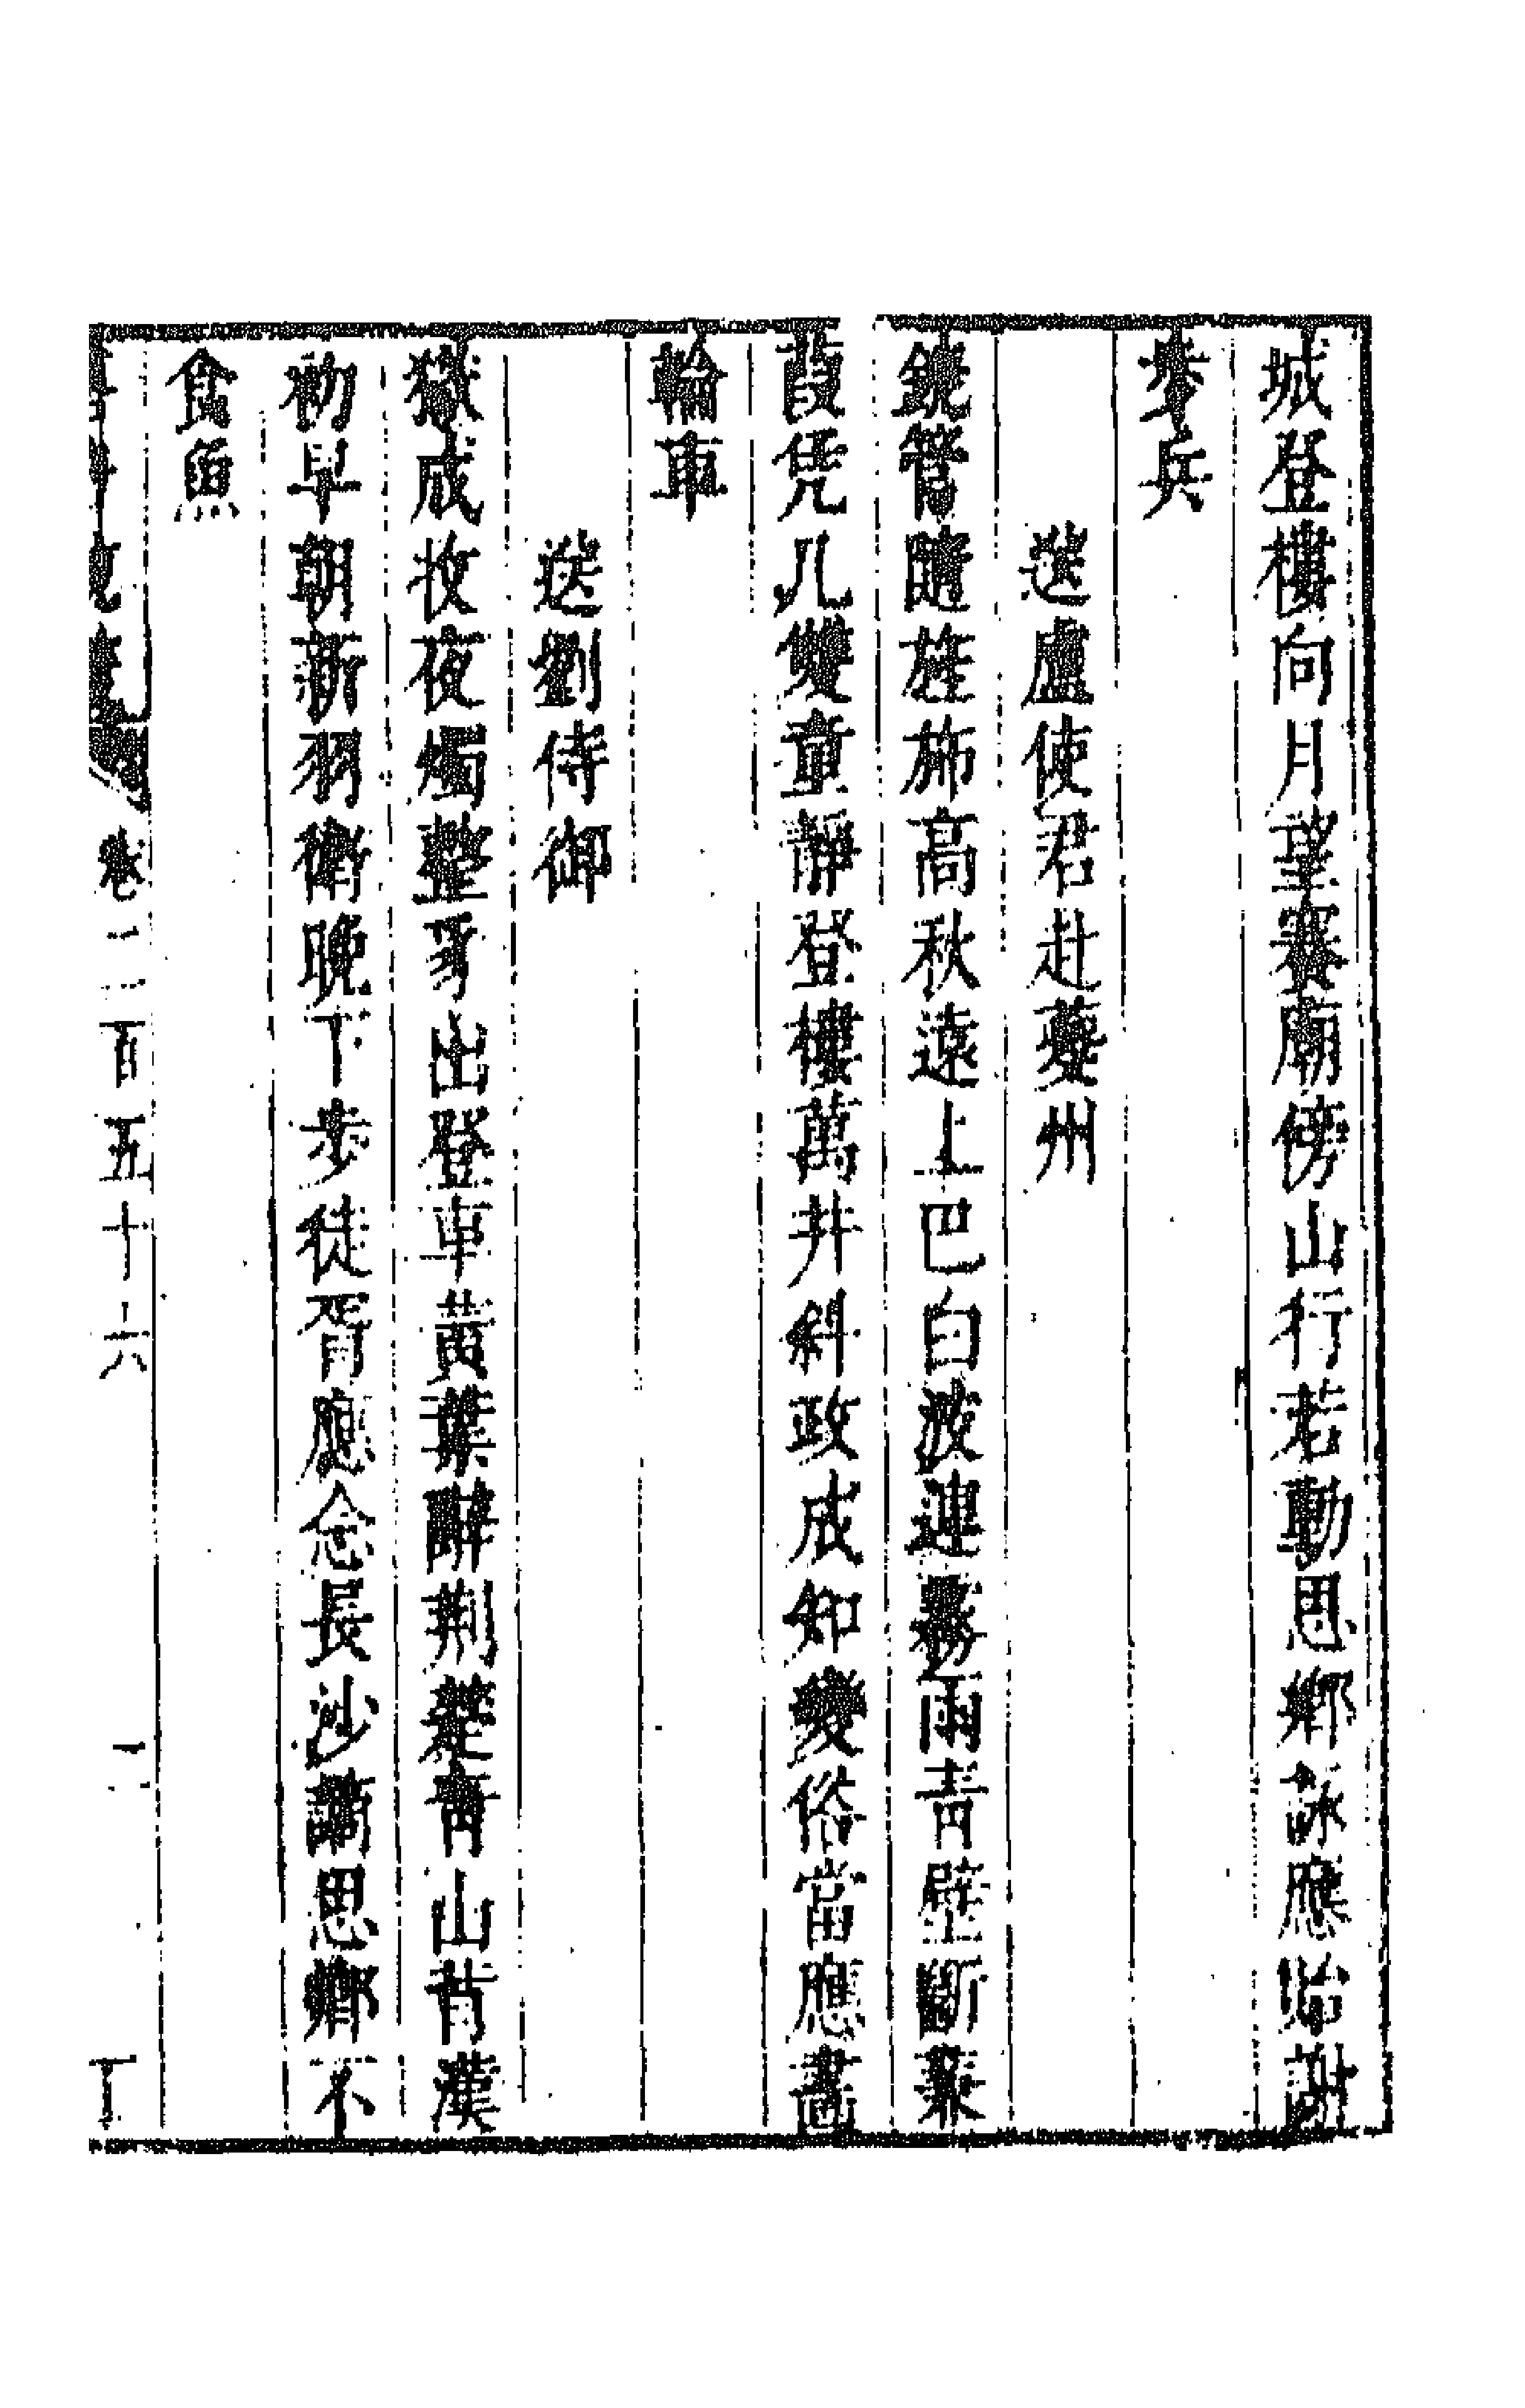 城登樓向月望賽廟傍山行若動思鄉詠應貽謝
步兵
送盧使君赴夔州
鐃管隨旌旆高秋遠上巴白波連霧雨青壁斷蒹
葭凭几雙童靜登樓萬井斜政成知變俗當應畫
輪車
送劉侍御
獄成收夜燭整豸出登車黃葉辭荊楚青山背漢
初早朝新羽衛晚下步徒胥應念長沙謫思鄉不
食魚
卷二百五十六